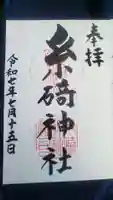 奉拝
糸碕神社
令和七年七月十五日